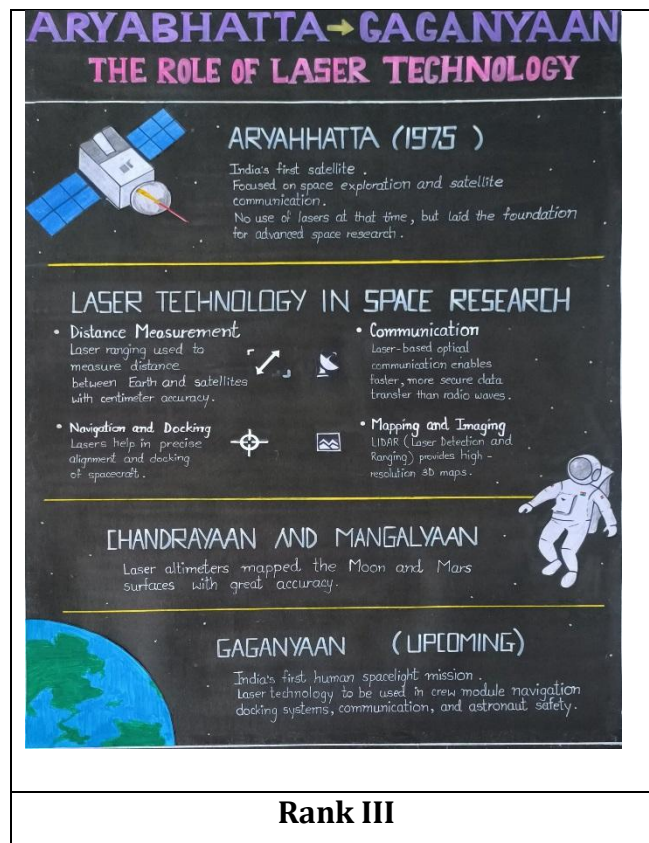 ARYABHATTA → GAGANYAAN
THE ROLE OF LASER TECHNOLOGY
ARYAHHATTA (1975 )
India's first satellite .
Focused on space exploration and satellite
communication.
No use of lasers at that time, but laid the foundation
for advanced space research .
LASER TECHNOLOGY IN SPACE RESEARCH
• Distance Measurement
Laser ranging used to
measure distance
between Earth and satellites
with centimeter accuracy.
• Communication
Laser-based optical
communication enables
faster, more secure data
transfer than radio waves.
• Navigation and Docking
Lasers help in precise
alignment and docking
of spacecraft .
• Mapping and Imaging
LIDAR (Laser Detection and
Ranging) provides high -
resolution 3D maps.
CHANDRAYAAN AND MANGALYAAN
Laser altimeters mapped the Moon and Mars
surfaces with great accuracy.
GAGANYAAN (UPCOMING)
India's first human spacelight mission .
Laser technology to be used in crew module navigation
docking systems, communication, and astronaut safety.
Rank III